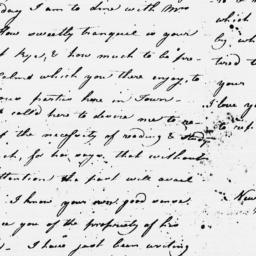 day I am to dine with Mrs
How sweetly tranquil is your
at Rye, & how much to be pre-
which you there enjoy, to
parties here in Town
called here to desire me to re-
of the necessity of reading & study
for his eyes, that without
attention the part will avail
I know your own good sense
you of the propriety of his
I have just been writing
which
by, wh
tired t
your
I love yo
to rep
New